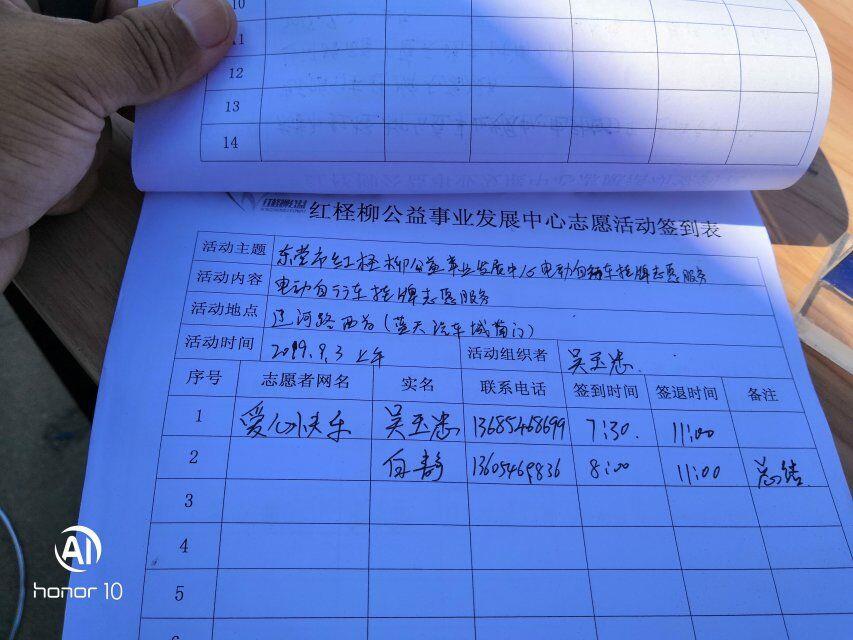 10
11
12
13
14
红柽柳公益
红柽柳公益事业发展中心志愿活动签到表
活动主题 东营市红柽柳公益事业发展中心电动自行车挂牌志愿服务
活动内容 电动自行车挂牌志愿服务
活动地点 辽河路西首(蓝天汽车城南门)
活动时间 2019.9.3 上午 活动组织者 吴玉忠
序号 志愿者网名 实名 联系电话 签到时间 签退时间 备注
1 爱心快乐 吴玉忠 13685468699 7:30 11:00
2 白静 13605469836 8:00 11:00 总结
3
4
5
AI
honor 10